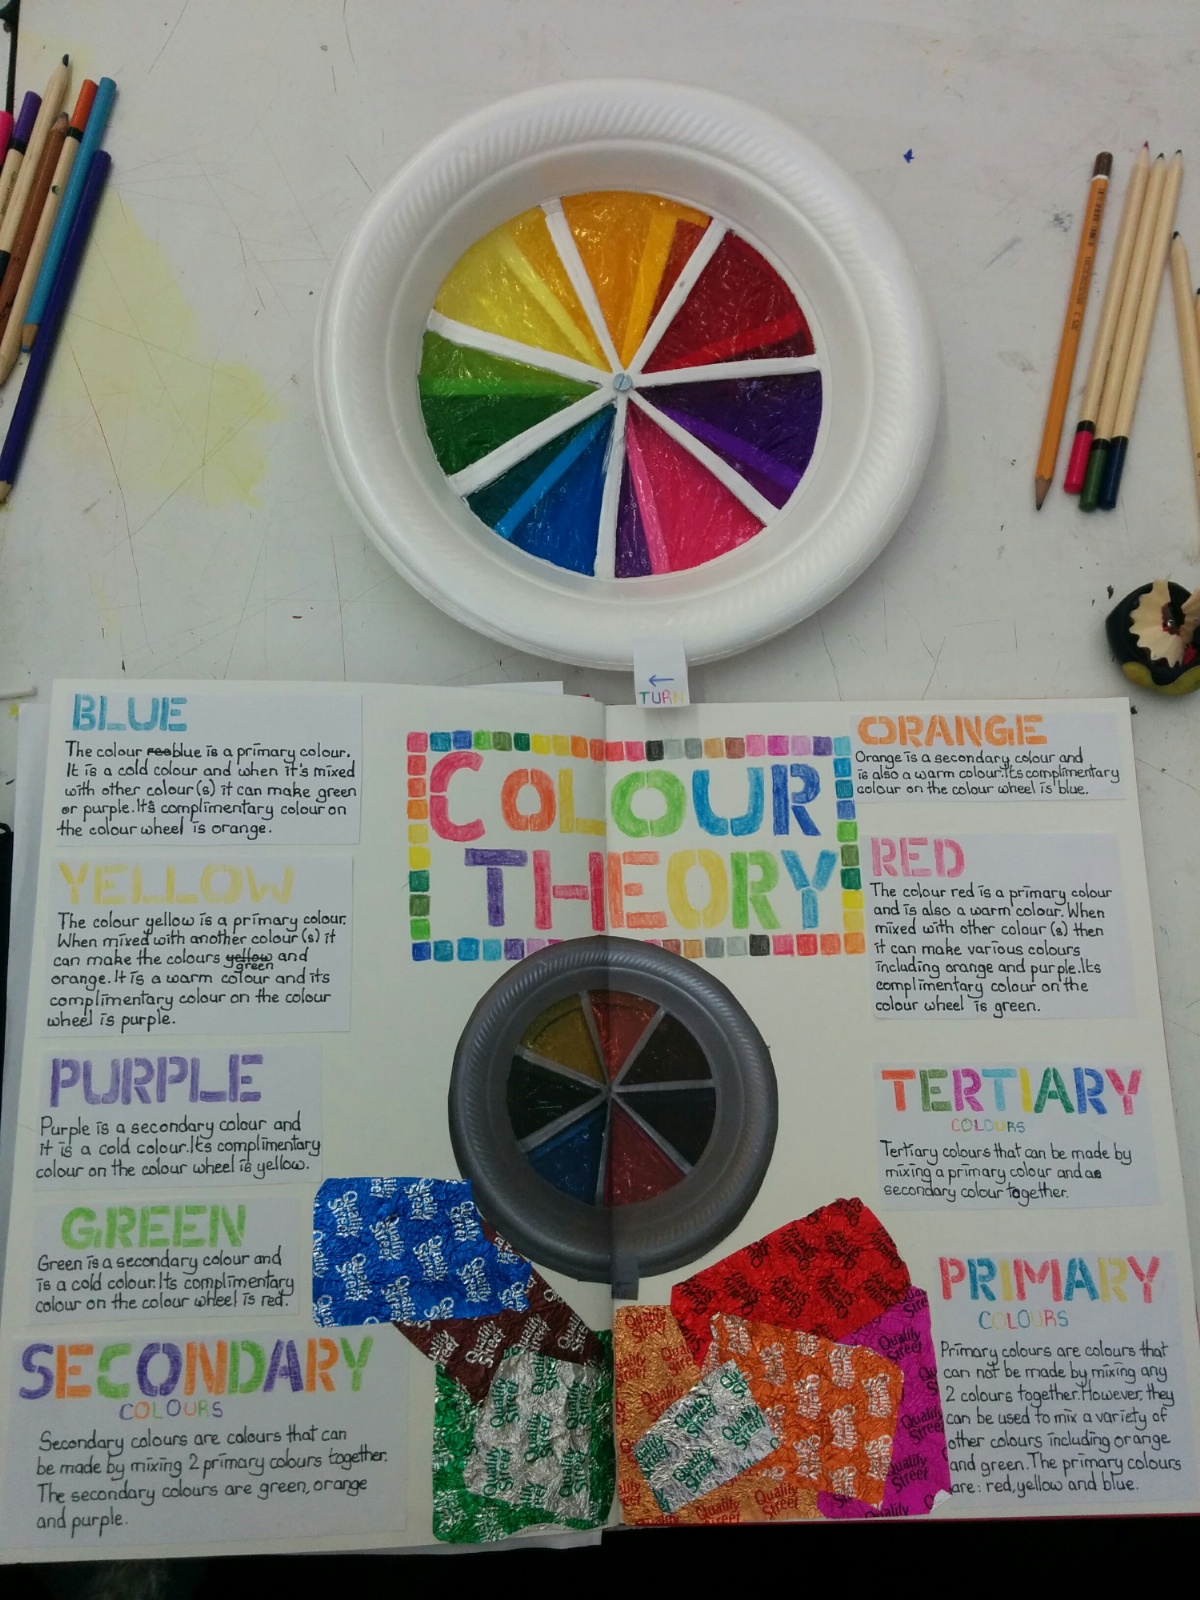 TURN
BLUE
The colour blue is a primary colour.
It is a cold colour and when it's mixed
with other colour(s) it can make green
or purple.It's complimentary colour on
the colour wheel is orange.
YELLOW
The colour yellow is a primary colour.
When mixed with another colour(s) it
can make the colours yellow and
green
orange. It is a warm colour and its
complimentary colour on the colour
wheel is purple.
PURPLE
Purple is a secondary colour and
it is a cold colour.Its complimentary
colour on the colour wheel is yellow.
GREEN
Green is a secondary colour and
is a cold colour. Its complimentary
colour on the colour wheel is red.
SECONDARY
COLOURS
Secondary colours are colours that can
be made by mixing 2 primary colours together.
The secondary colours are green, orange
and purple.
COLOUR
THEORY
ORANGE
Orange is a secondary colour and
is also a warm colour.Its complimentary
colour on the colour wheel is blue.
RED
The colour red is a primary colour
and is also a warm colour. When
mixed with other colour (s) then
it can make various colours
including orange and purple.Its
complimentary colour on the
colour wheel is green.
TERTIARY
COLOURS
Tertiary colours that can be made by
mixing a primary colour and a
secondary colour together.
PRIMARY
COLOURS
Primary colours are colours that
can not be made by mixing any
2 colours together.However, they
can be used to mix a variety of
other colours including orange
and green. The primary colours
are: red, yellow and blue.
Quality
Street
Quality
Street
Quality
Street
Quality
Street
Quality
Street
Quality
Street